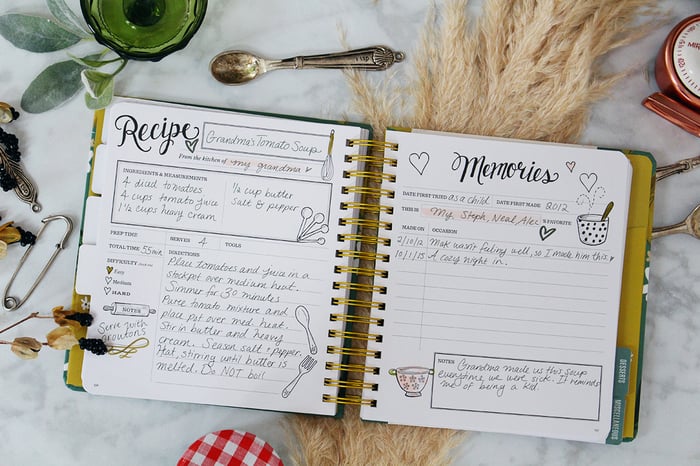 Recipe
Grandma's Tomato Soup
From the kitchen of my grandma
INGREDIENTS & MEASUREMENTS
4 diced tomatoes
4 cups tomato juice
1 ½ cups heavy cream
¼ cup butter
Salt & pepper
PREP TIME
SERVES 4
TOOLS
TOTAL TIME 55 min
DIRECTIONS
DIFFICULTY
Easy
Medium
HARD
Place tomatoes and juice in a
stockpot over medium heat.
Simmer for 30 minutes
Puree tomato mixture and
place put over med. heat.
Stir in butter and heavy
cream. Season salt + pepper.
Hat, stirring until butter is
melted. Do NOT boil
NOTES
Serve with
croutons
Memories
DATE FIRST TRIED as a child
DATE FIRST MADE 2012
THIS IS My, Steph, Neal, Alec 'S FAVORITE
MADE ON
OCCASION
2/10/12 Mak wasn't feeling well, so I made him this.
10/1/15 A cozy night in.
NOTES
Grandma made us this soup
everytime we were sick. It reminds
me of being a kid.
DESSERTS
MISCELLANEOUS